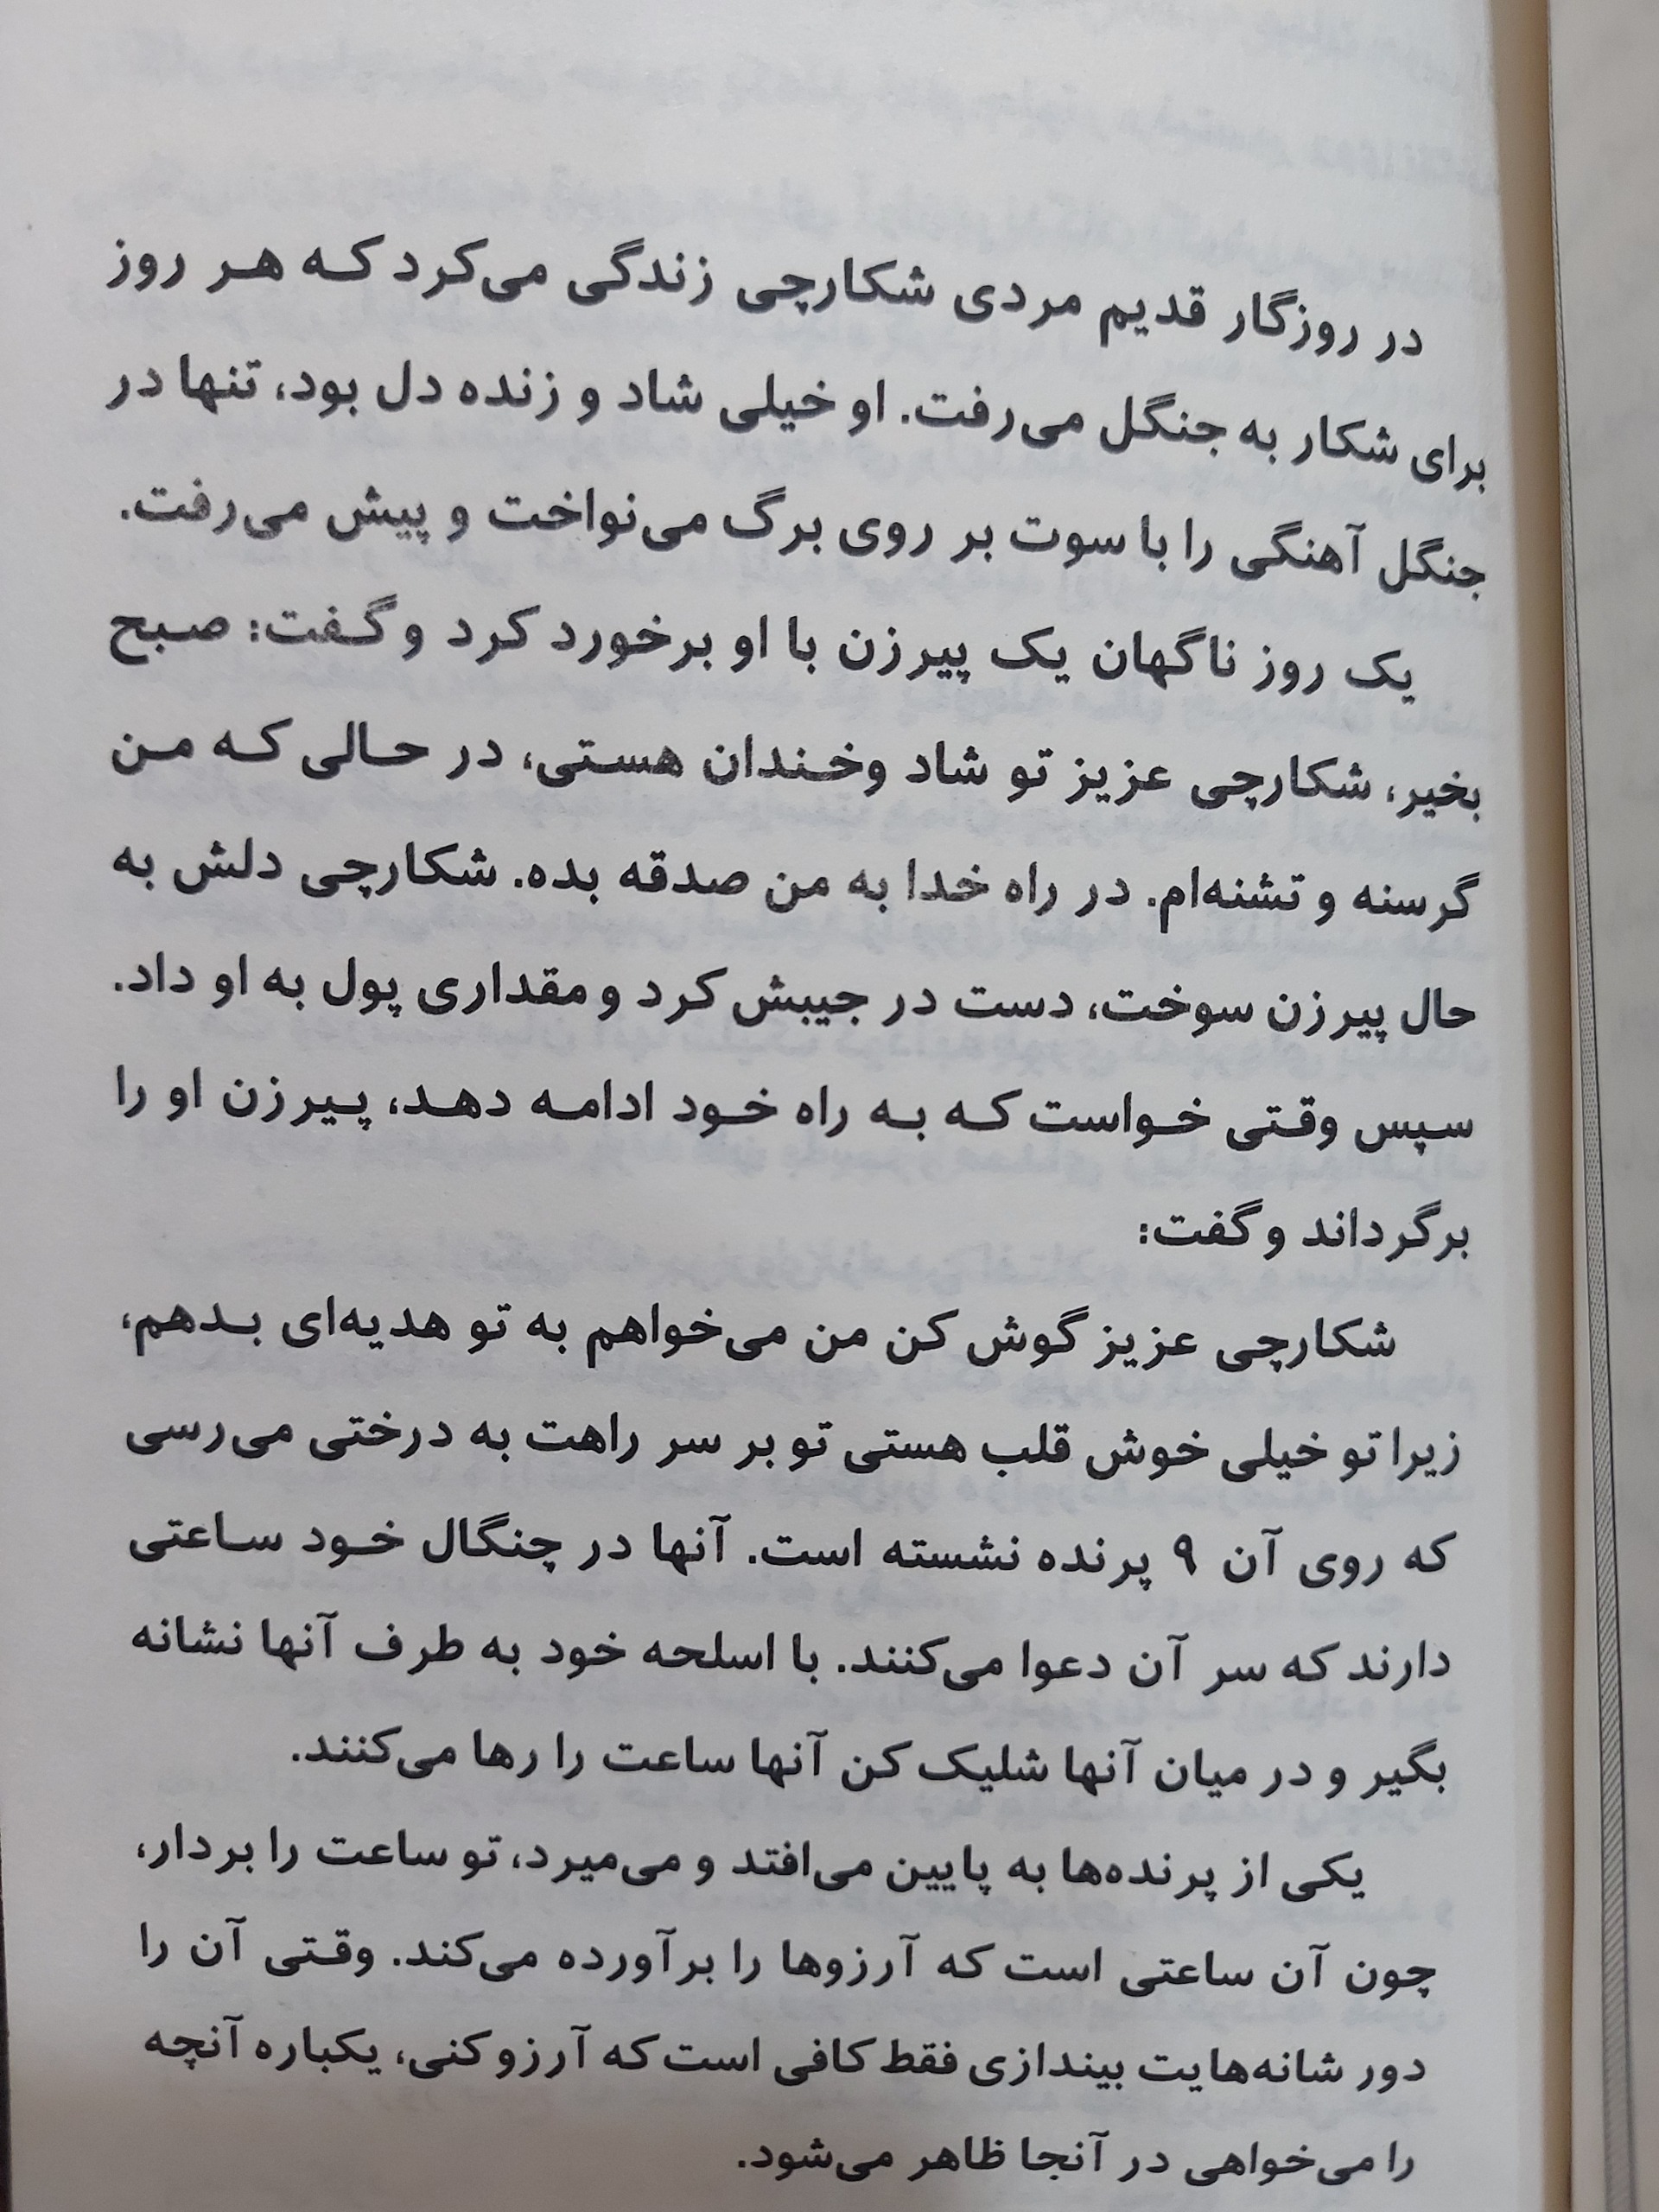 در روزگار قدیم مردی شکارچی زندگی می‌کرد که هر روز
برای شکار به جنگل می‌رفت. او خیلی شاد و زنده دل بود، تنها در
جنگل آهنگی را با سوت بر روی برگ می‌نواخت و پیش می‌رفت.
یک روز ناگهان یک پیرزن با او برخورد کرد و گفت: صبح
بخیر، شکارچی عزیز تو شاد وخندان هستی، در حالی که من
گرسنه و تشنه‌ام. در راه خدا به من صدقه بده. شکارچی دلش به
حال پیرزن سوخت، دست در جیبش کرد و مقداری پول به او داد.
سپس وقتی خواست که به راه خود ادامه دهد، پیرزن او را
برگرداند و گفت:
شکارچی عزیز گوش کن من می‌خواهم به تو هدیه‌ای بدهم،
زیرا تو خیلی خوش قلب هستی تو بر سر راهت به درختی می‌رسی
که روی آن ۹ پرنده نشسته است. آنها در چنگال خود ساعتی
دارند که سر آن دعوا می‌کنند. با اسلحه خود به طرف آنها نشانه
بگیر و در میان آنها شلیک کن آنها ساعت را رها می‌کنند.
یکی از پرنده‌ها به پایین می‌افتد و می‌میرد، تو ساعت را بردار،
چون آن ساعتی است که آرزوها را برآورده می‌کند. وقتی آن را
دور شانه‌هایت بیندازی فقط کافی است که آرزو کنی، یکباره آنچه
را می‌خواهی در آنجا ظاهر می‌شود.